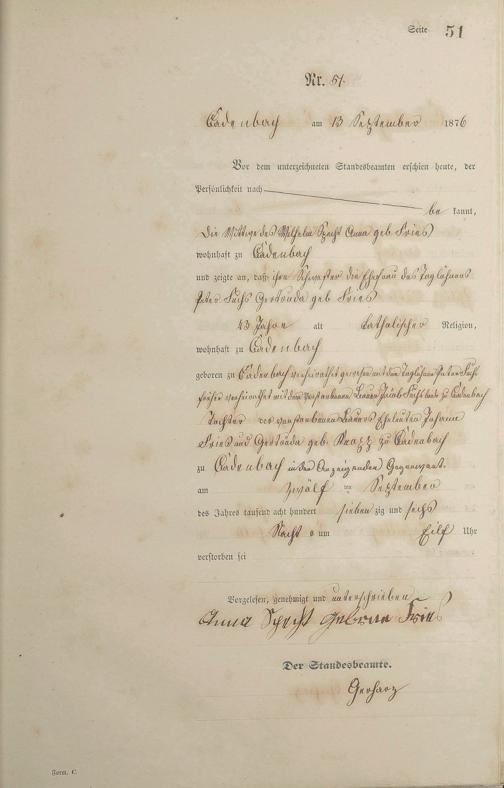 Seite 51
Nr. 51.
Cadenbach am 13 September 1876
Vor dem unterzeichneten Standesbeamten erschien heute, der
Persönlichkeit nach
be kannt,
die Wittwe des Wilhelm Specht Anna geb Fries
wohnhaft zu Cadenbach
und zeigte an, daß ihre Schwester die Ehefrau des Taglöhners
Peter Fuchs Gertrauda geb Fries
43 Jahre alt katholischer Religion,
wohnhaft zu Cadenbach
geboren zu Cadenbach verheirathet gewesen mit dem Taglöhner Peter Fuchs
früher verheirathet mit dem verstorbenen Bauer Jacob Fuchs zu Cadenbach
Tochter der verstorbenen Bauers Eheleuten Johann
Fries und Gertrauda geb. zu Cadenbach
zu Cadenbach in der Anzeigenden Gegenwart.
am zwölf September
des Jahres tausend acht hundert sieben zig und sechs
Nacht s um Eilf Uhr
verstorben sei
Vorgelesen, genehmigt und unterschrieben
Anna Specht geborene Fries
Der Standesbeamte.
Gerharz
Form. C.